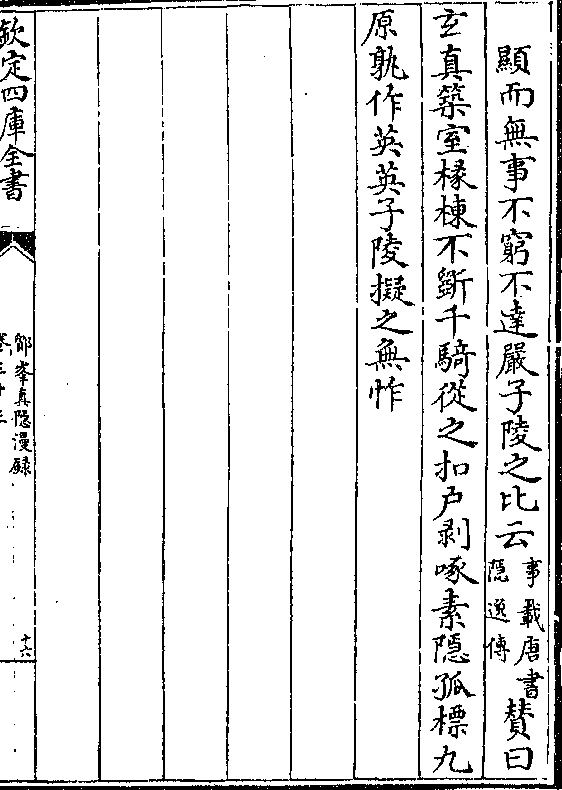 顯而無事不窮不達嚴子陵之比云事載唐書隱逸傳贊曰
玄真築室椽棟不斲千騎從之扣户剥啄素隱孤標九
原孰作英英子陵擬之無怍
欽定四庫全書
鄮峯真隱漫録
卷三十
十六